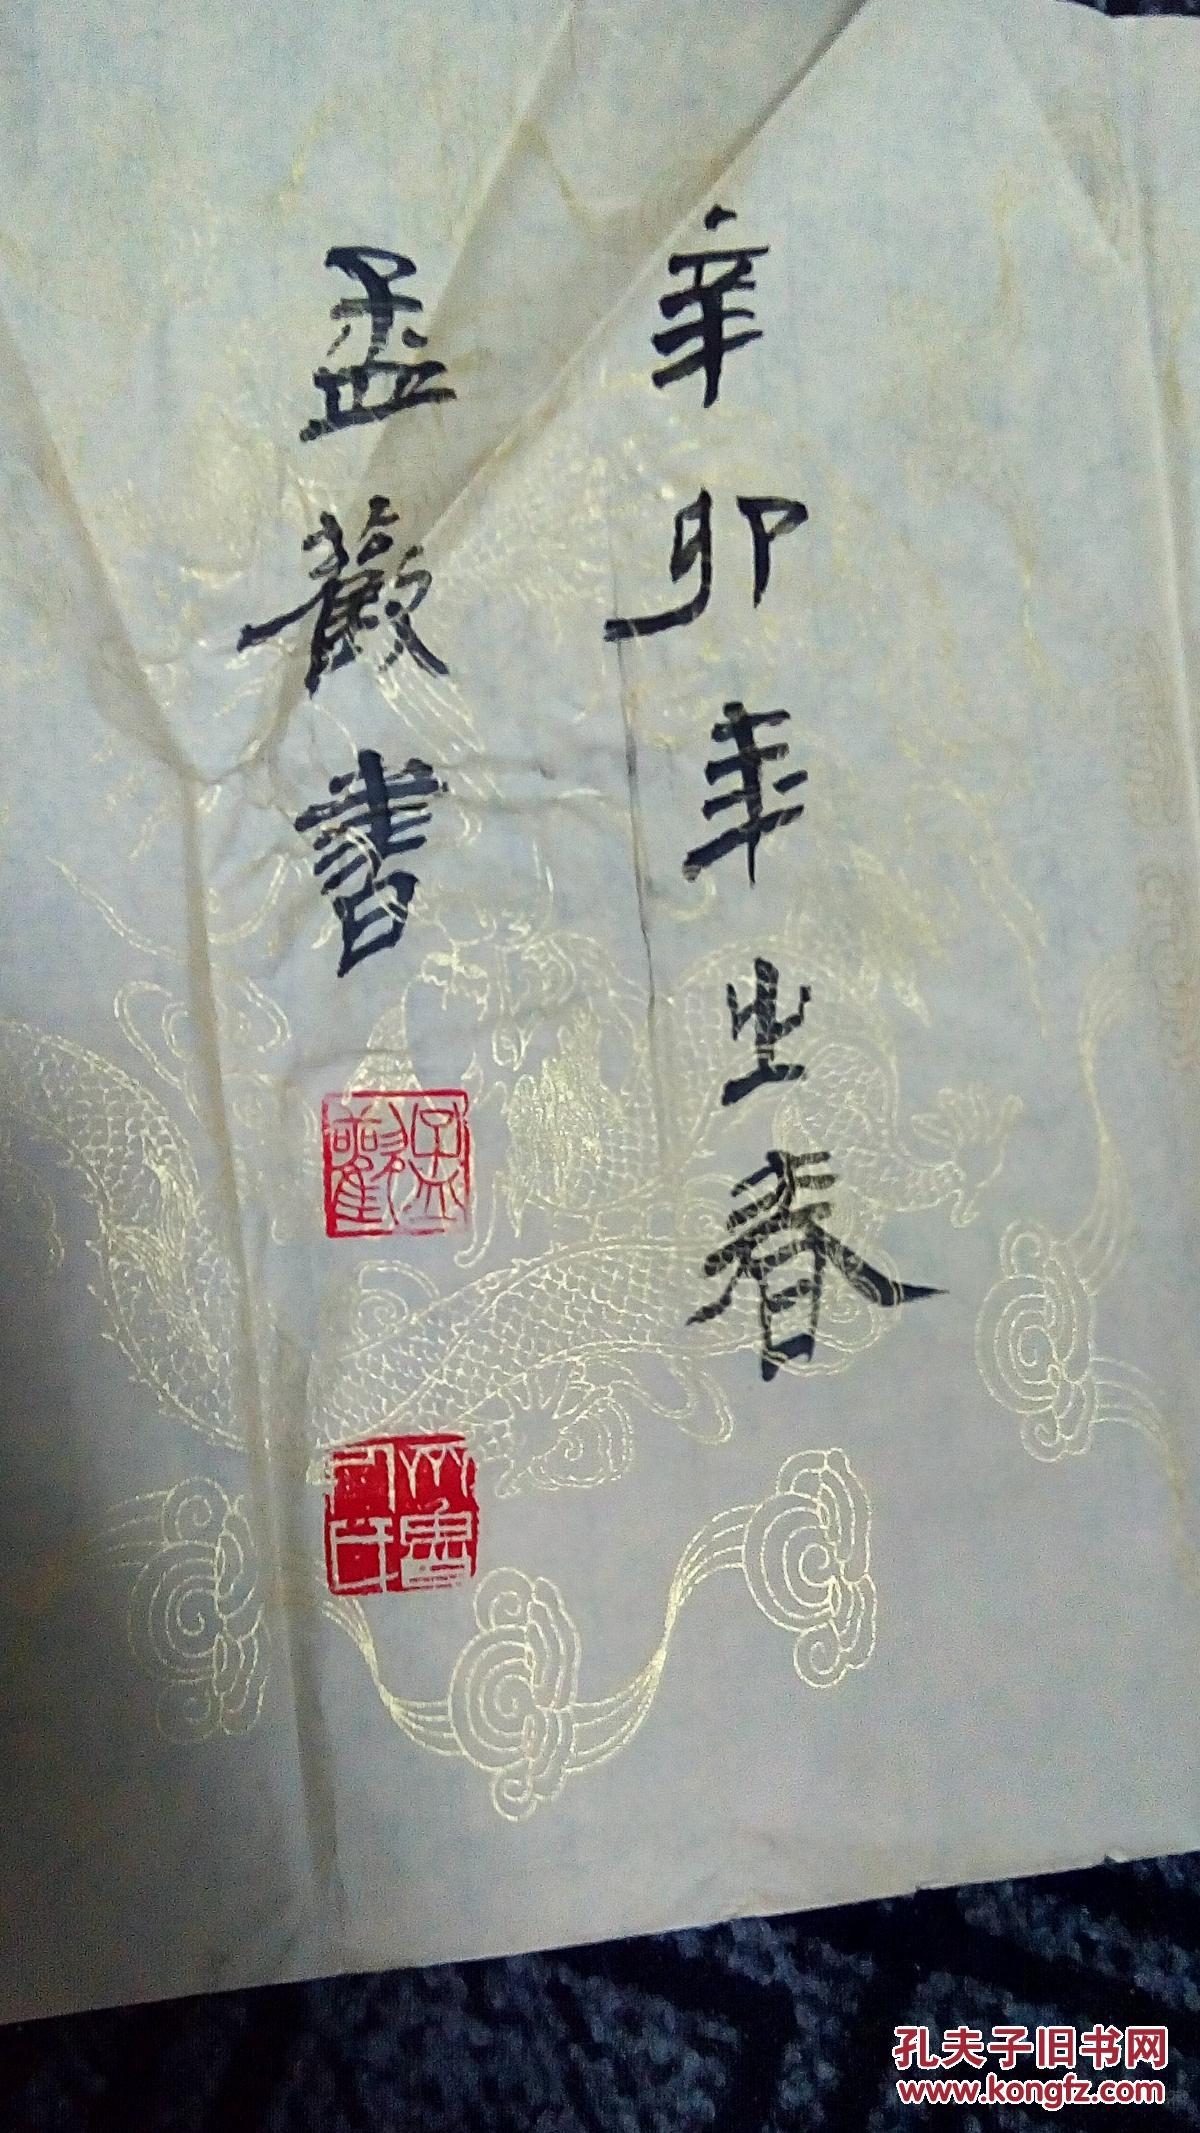 辛卯年之春
孟薇書
孔夫子旧书网
www.kongfz.com